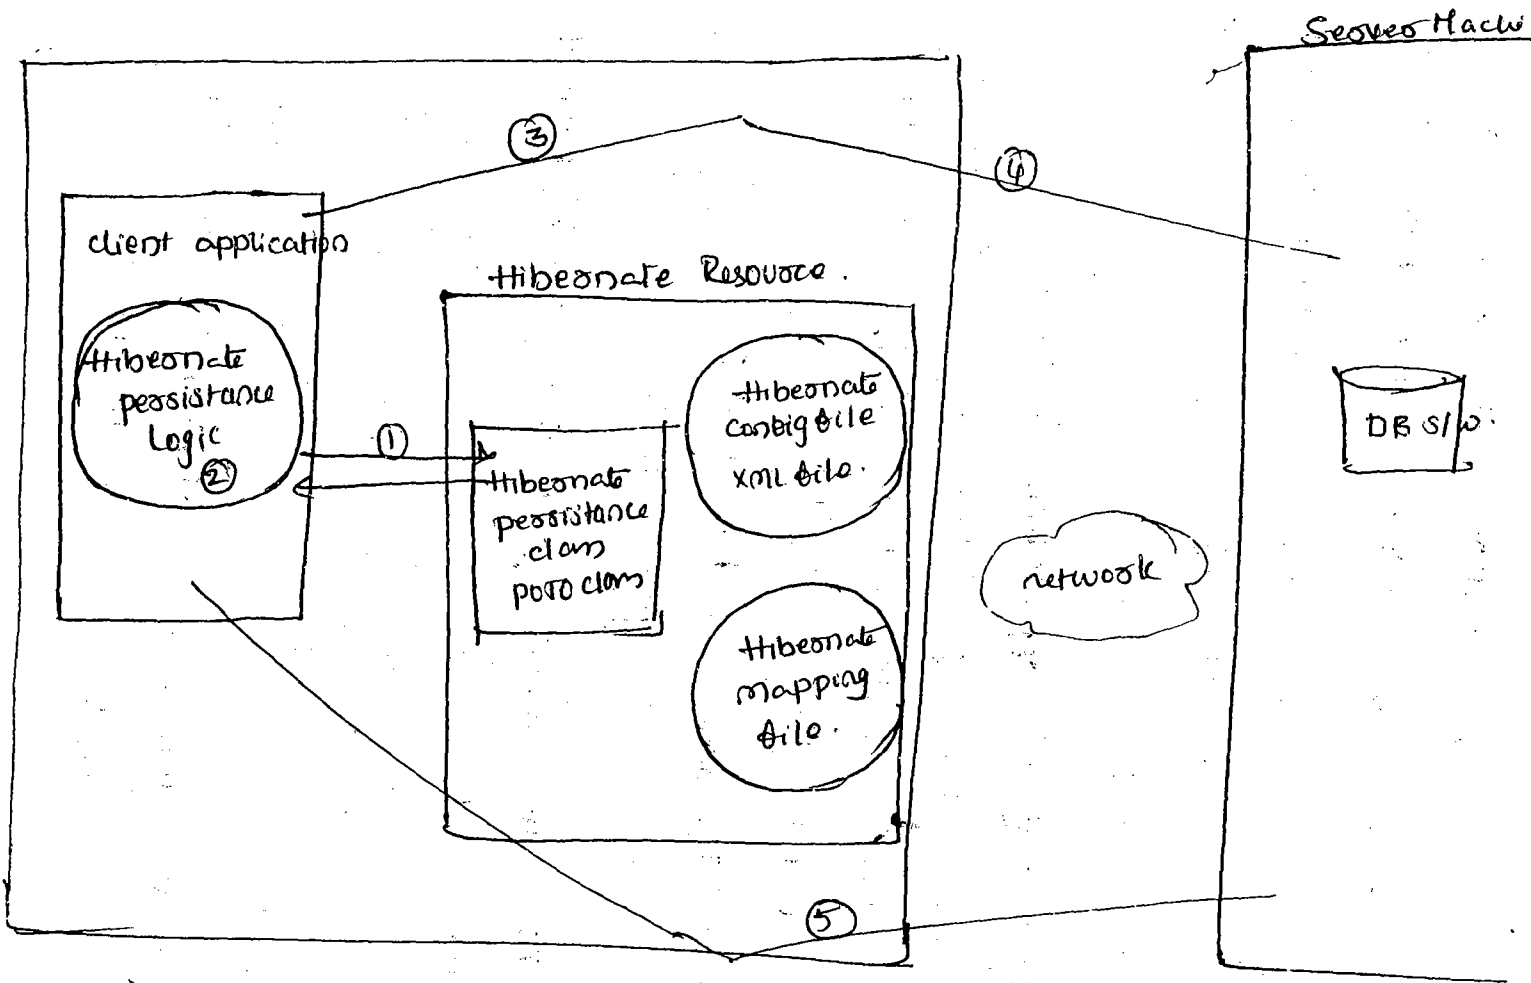 Server Machi
③
④
client application
Hibernate Resource.
Hibernate
persistance
Logic
②
①
Hibernate
persistance
class
POJO class
Hibernate
config file
XML file.
Hibernate
mapping
file.
network
DB S/W.
⑤